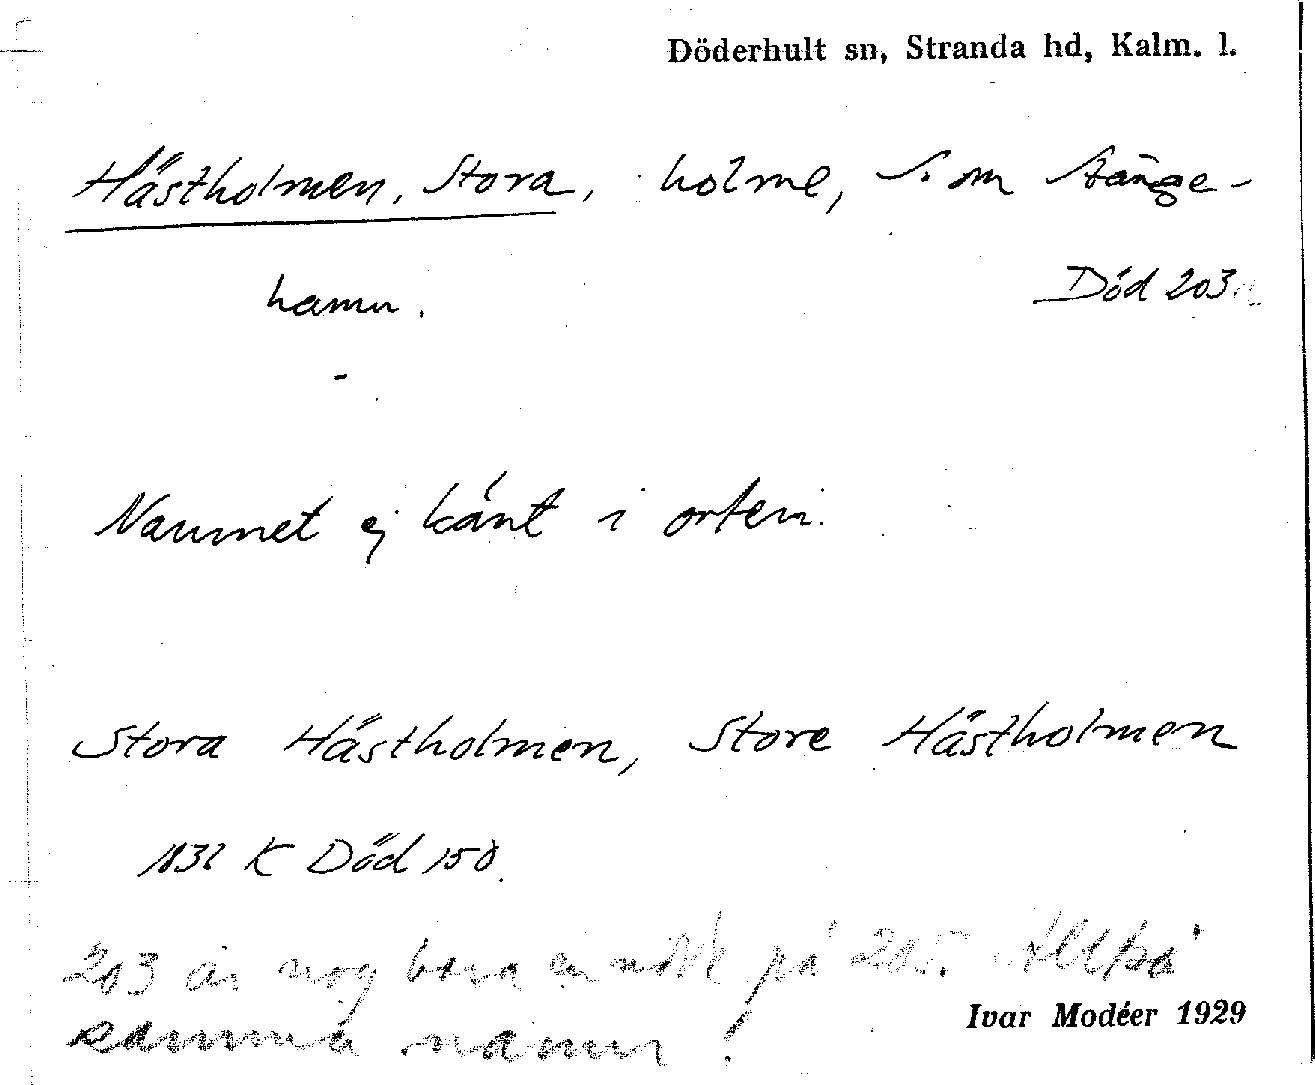 Döderhult sn, Stranda hd, Kalm. l.
Hästholmen, Stora, holme, S. om Stånge-
hamn.
Död 203
Namnet ej känt i orten.
Stora Hästholmen, Store Hästholmen
1832 K Död 150.
203 är nog bara en vik på 205. Alltså
samma namn!
Ivar Modéer 1929